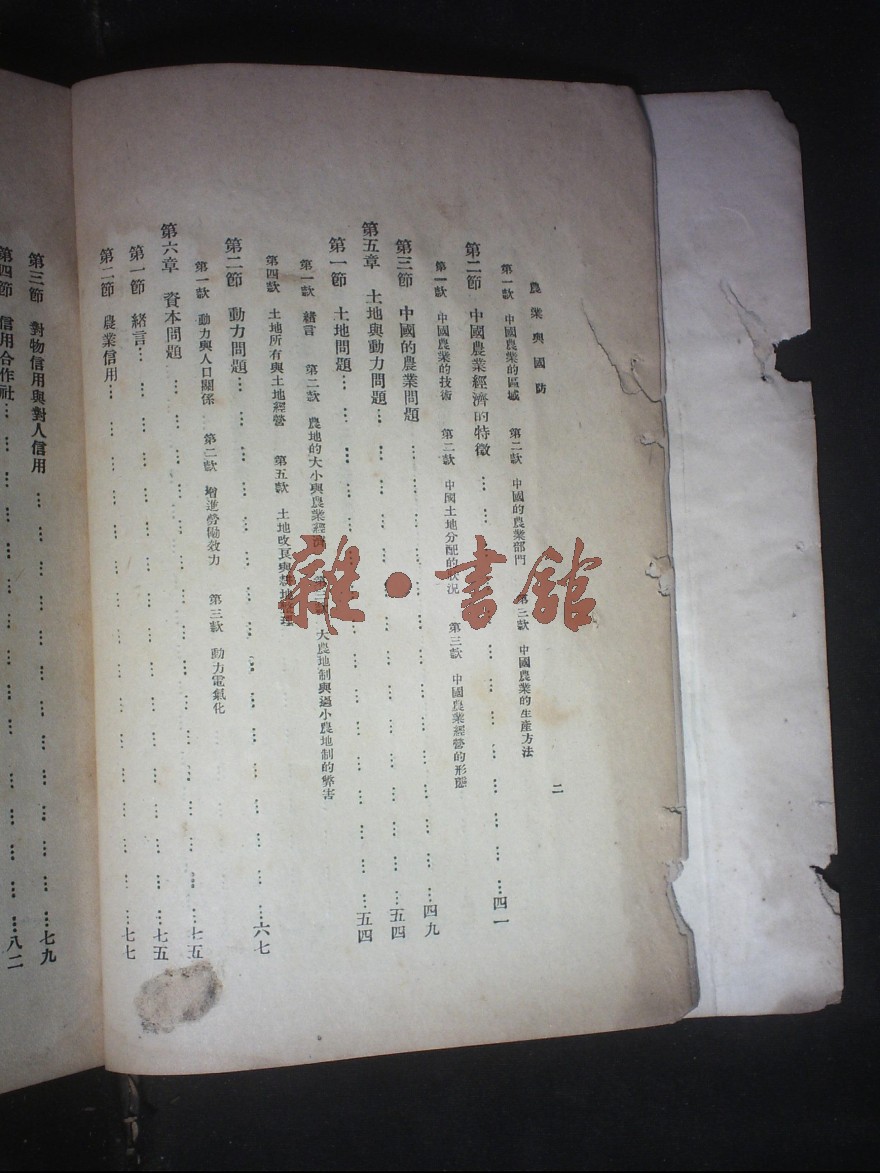 農業與國防
二
第一款 中國農業的區域 第二款 中國的農業部門 第三款 中國農業的生產方法
第二節 中國農業經濟的特徵…………四一
第一款 中國農業的技術 第二款 中國土地分配的狀況 第三款 中國農業經營的形態
第三節 中國的農業問題…………四九
第五章 土地與動力問題…………五四
第一節 土地問題…………五四
第一款 緒言 第二款 農地的大小與農業經 第三款 大農地制與過小農地制的弊害
第四款 土地所有與土地經營 第五款 土地改良與 地整理
第二節 動力問題…………六七
第一款 動力與人口關係 第二款 增進勞働效力 第三款 動力電氣化
第六章 資本問題…………七五
第一節 緒言…………七五
第二節 農業信用…………七七
第三節 對物信用與對人信用…………七九
第四節 信用合作社…………八二
雜·書館